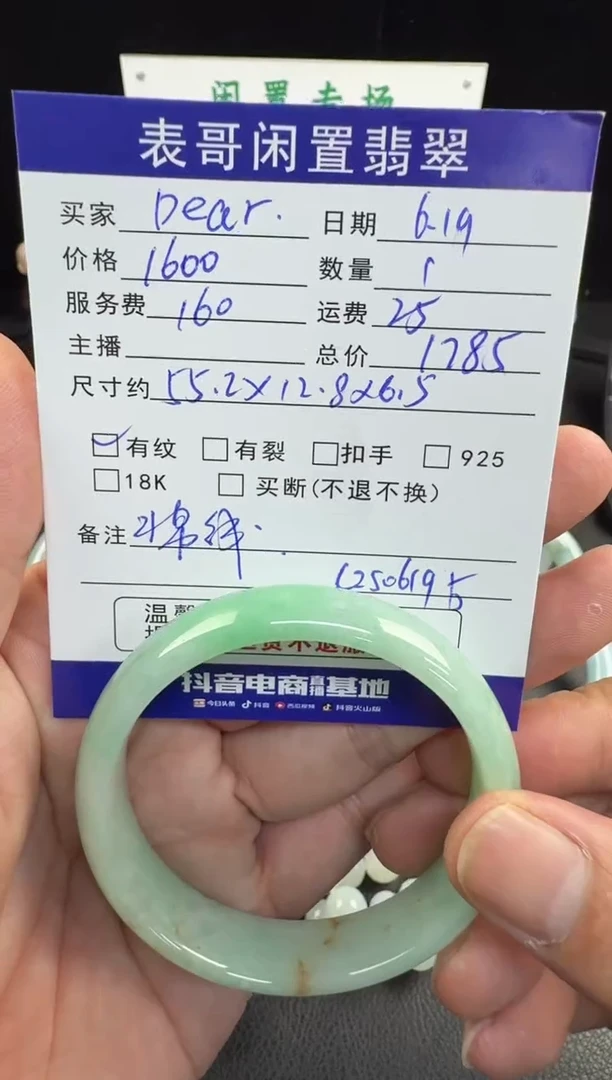 闲置专场
表哥闲置翡翠
买家 Dear. 日期 6.19
价格 1600 数量 1
服务费 160 运费 25
主播 总价 1785
尺寸约 55.2×12.8×6.5
有纹 有裂 扣手 925
18K 买断(不退不换)
备注 棉线.
温馨
抖音电商直播基地
今日头条 抖音 西瓜视频 抖音火山版